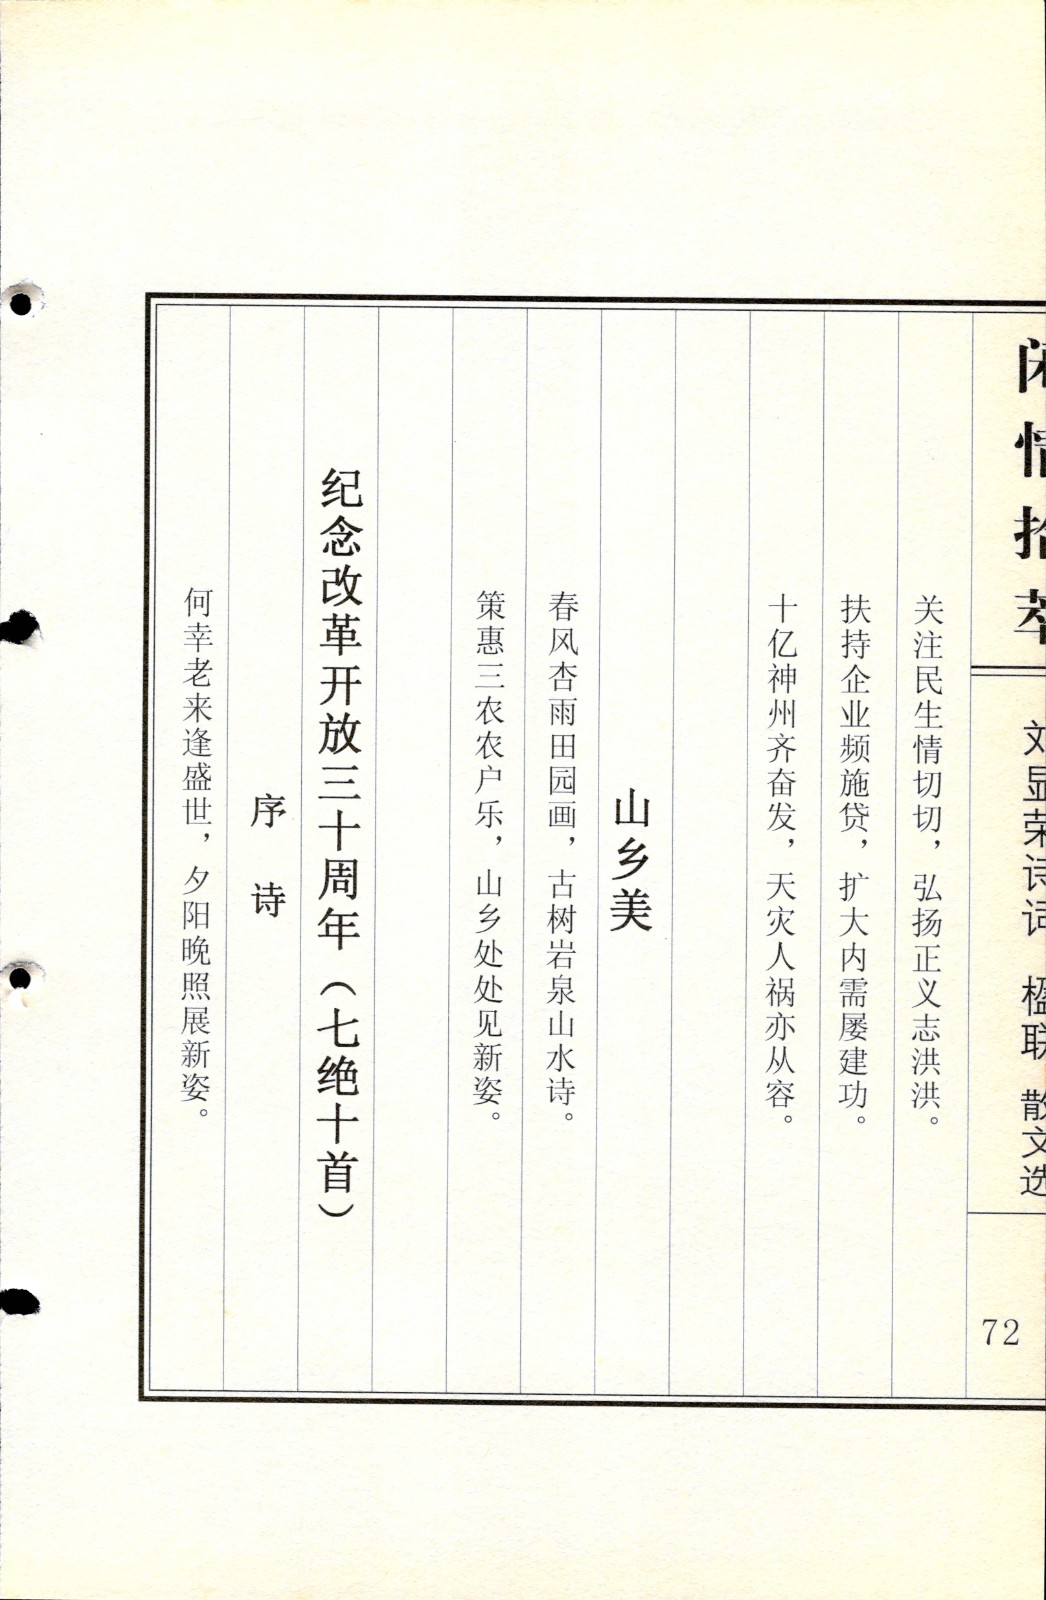 闲情拾萃
刘显荣诗词 楹联 散文选
72
关注民生情切切，弘扬正义志洪洪。
扶持企业频施贷，扩大内需屡建功。
十亿神州齐奋发，天灾人祸亦从容。
山乡美
春风杏雨田园画，古树岩泉山水诗。
策惠三农农户乐，山乡处处见新姿。
纪念改革开放三十周年（七绝十首）
序 诗
何幸老来逢盛世，夕阳晚照展新姿。